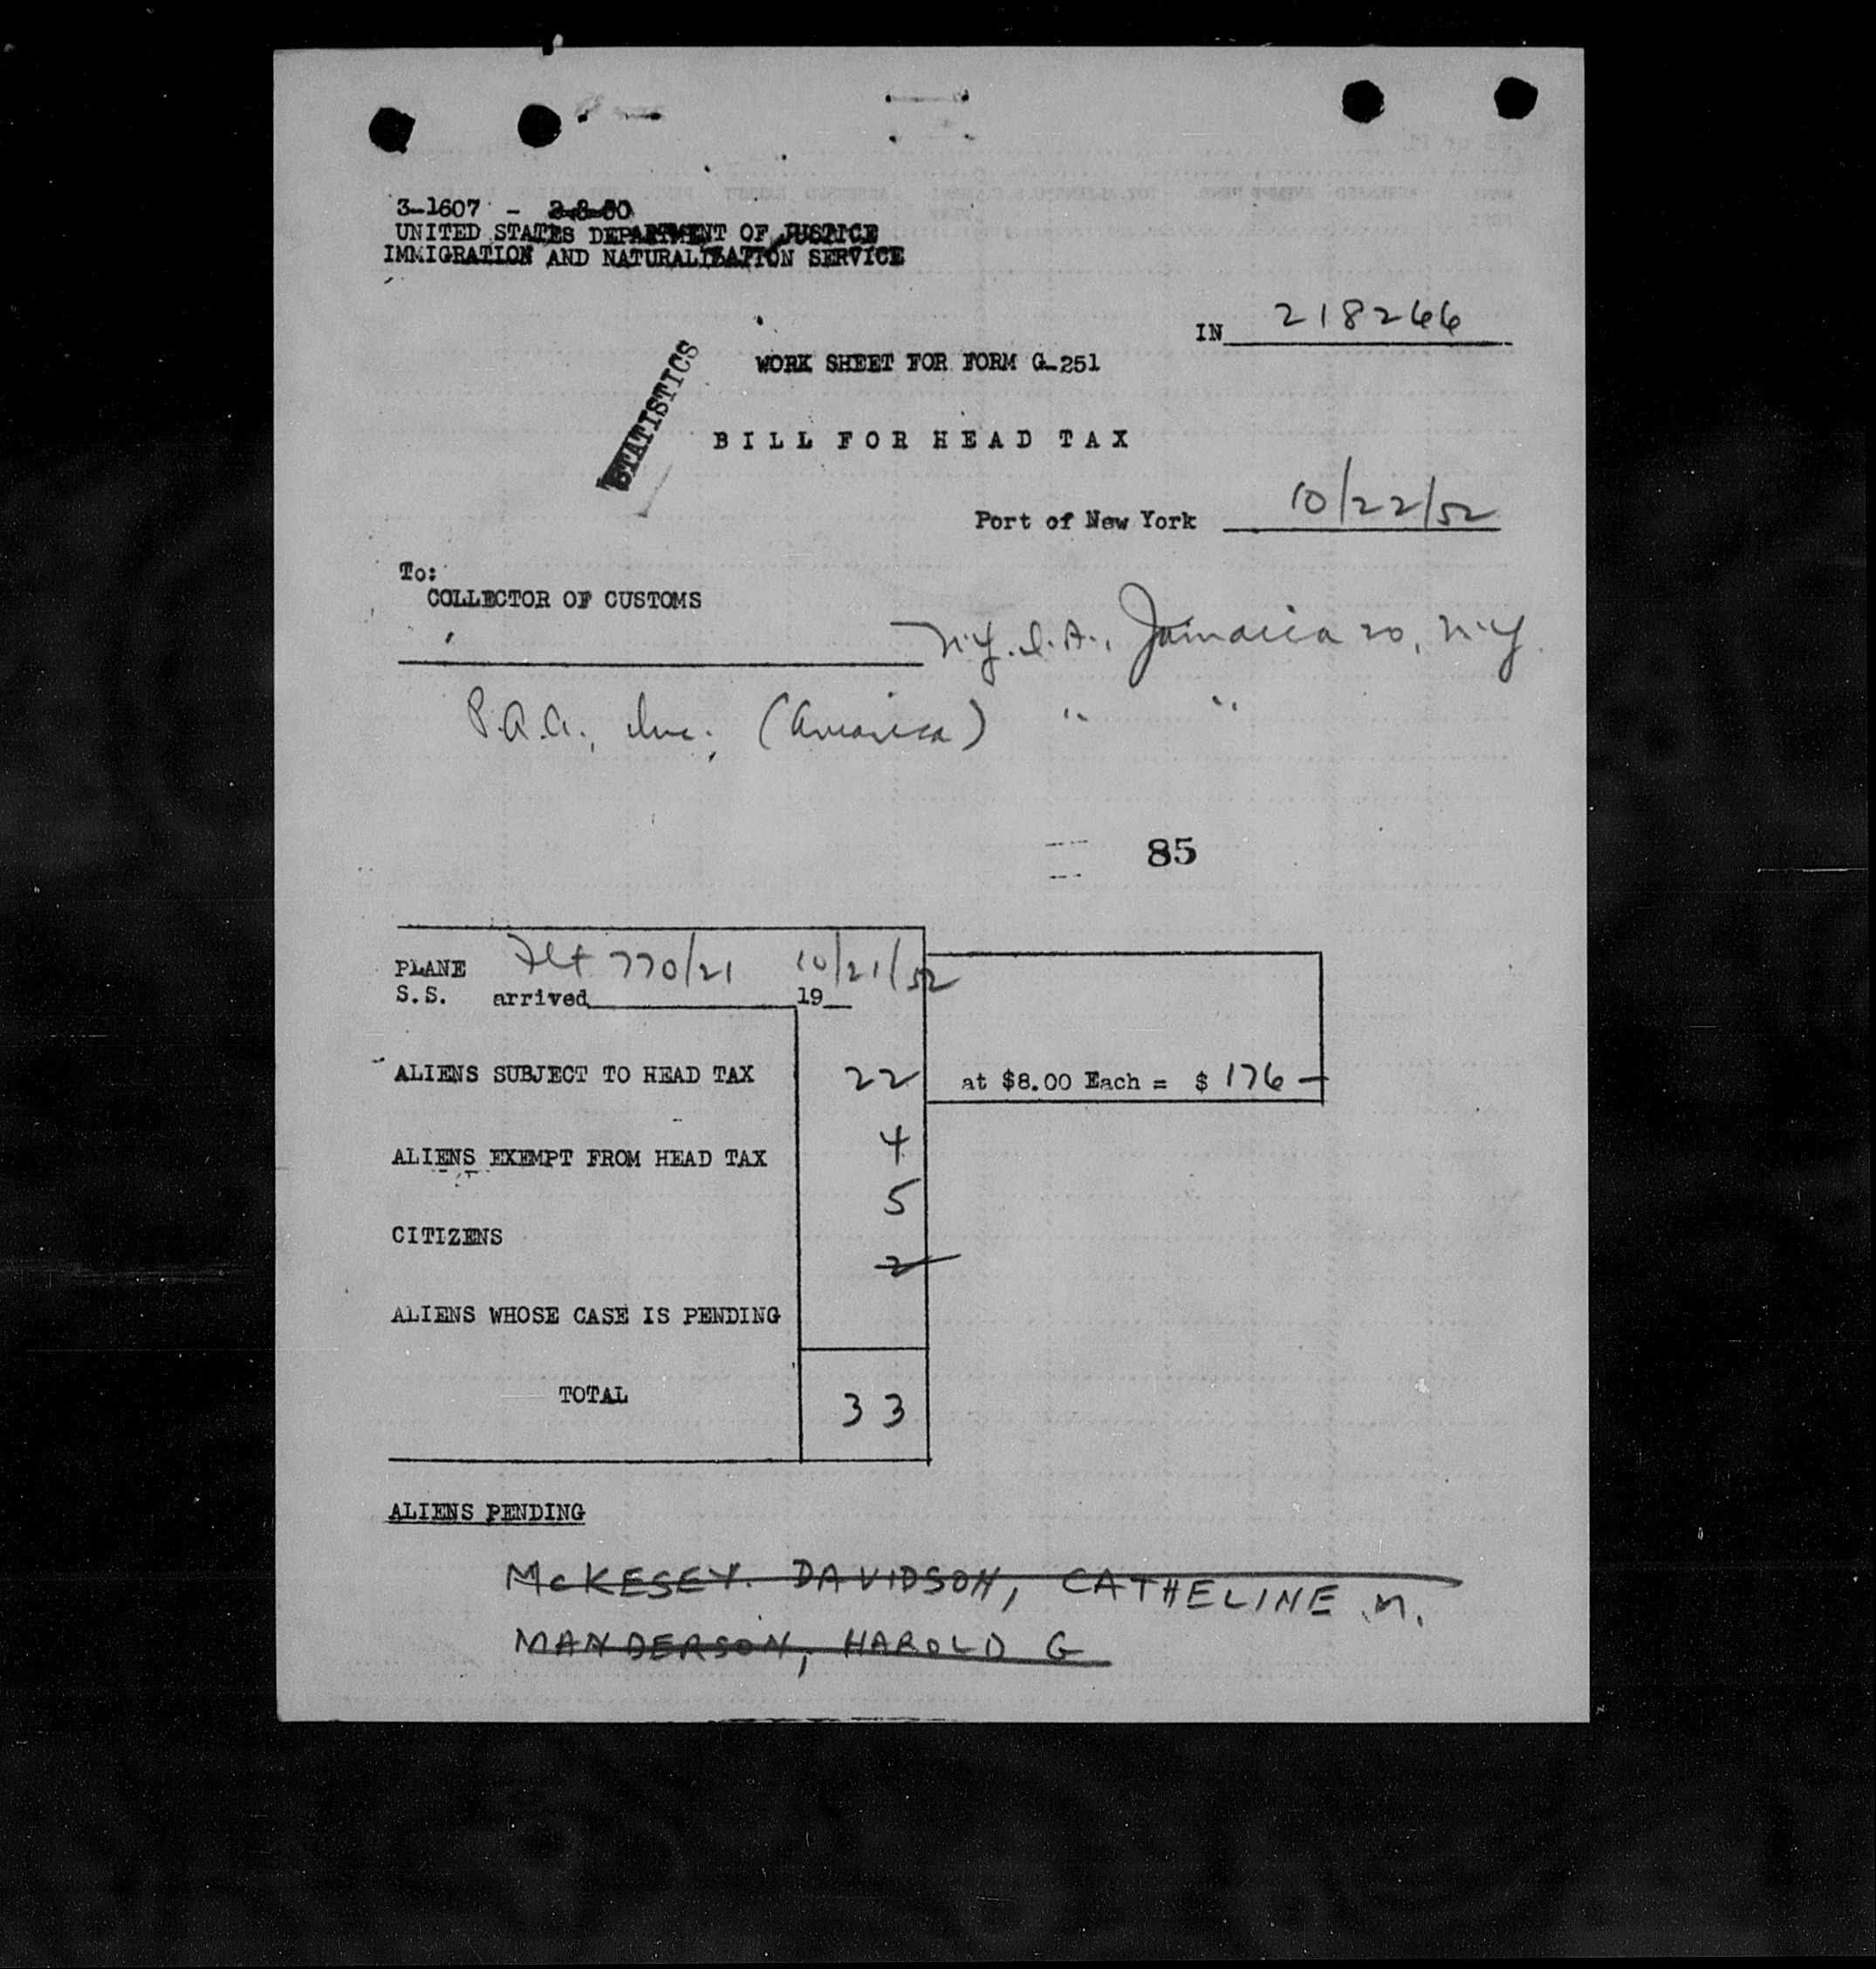 3-1607 - 2-8-50
UNITED STATES DEPARTMENT OF JUSTICE
IMMIGRATION AND NATURALIZATION SERVICE
IN 218266
STATISTICS
WORK SHEET FOR FORM G-251
BILL FOR HEAD TAX
Port of New York 10/22/52
To:
COLLECTOR OF CUSTOMS
N.Y.I.A., Jamaica 20, N.Y.
P.A.A., Inc., (America) " "
85
PLANE Flt 770/21 10/21/52
S.S. arrived 19
ALIENS SUBJECT TO HEAD TAX 22 at $8.00 Each = $ 176 -
ALIENS EXEMPT FROM HEAD TAX 4
5
CITIZENS
2
ALIENS WHOSE CASE IS PENDING
TOTAL 33
ALIENS PENDING
McKESEY. DAVIDSON, CATHELINE M.
MANDERSON, HAROLD G